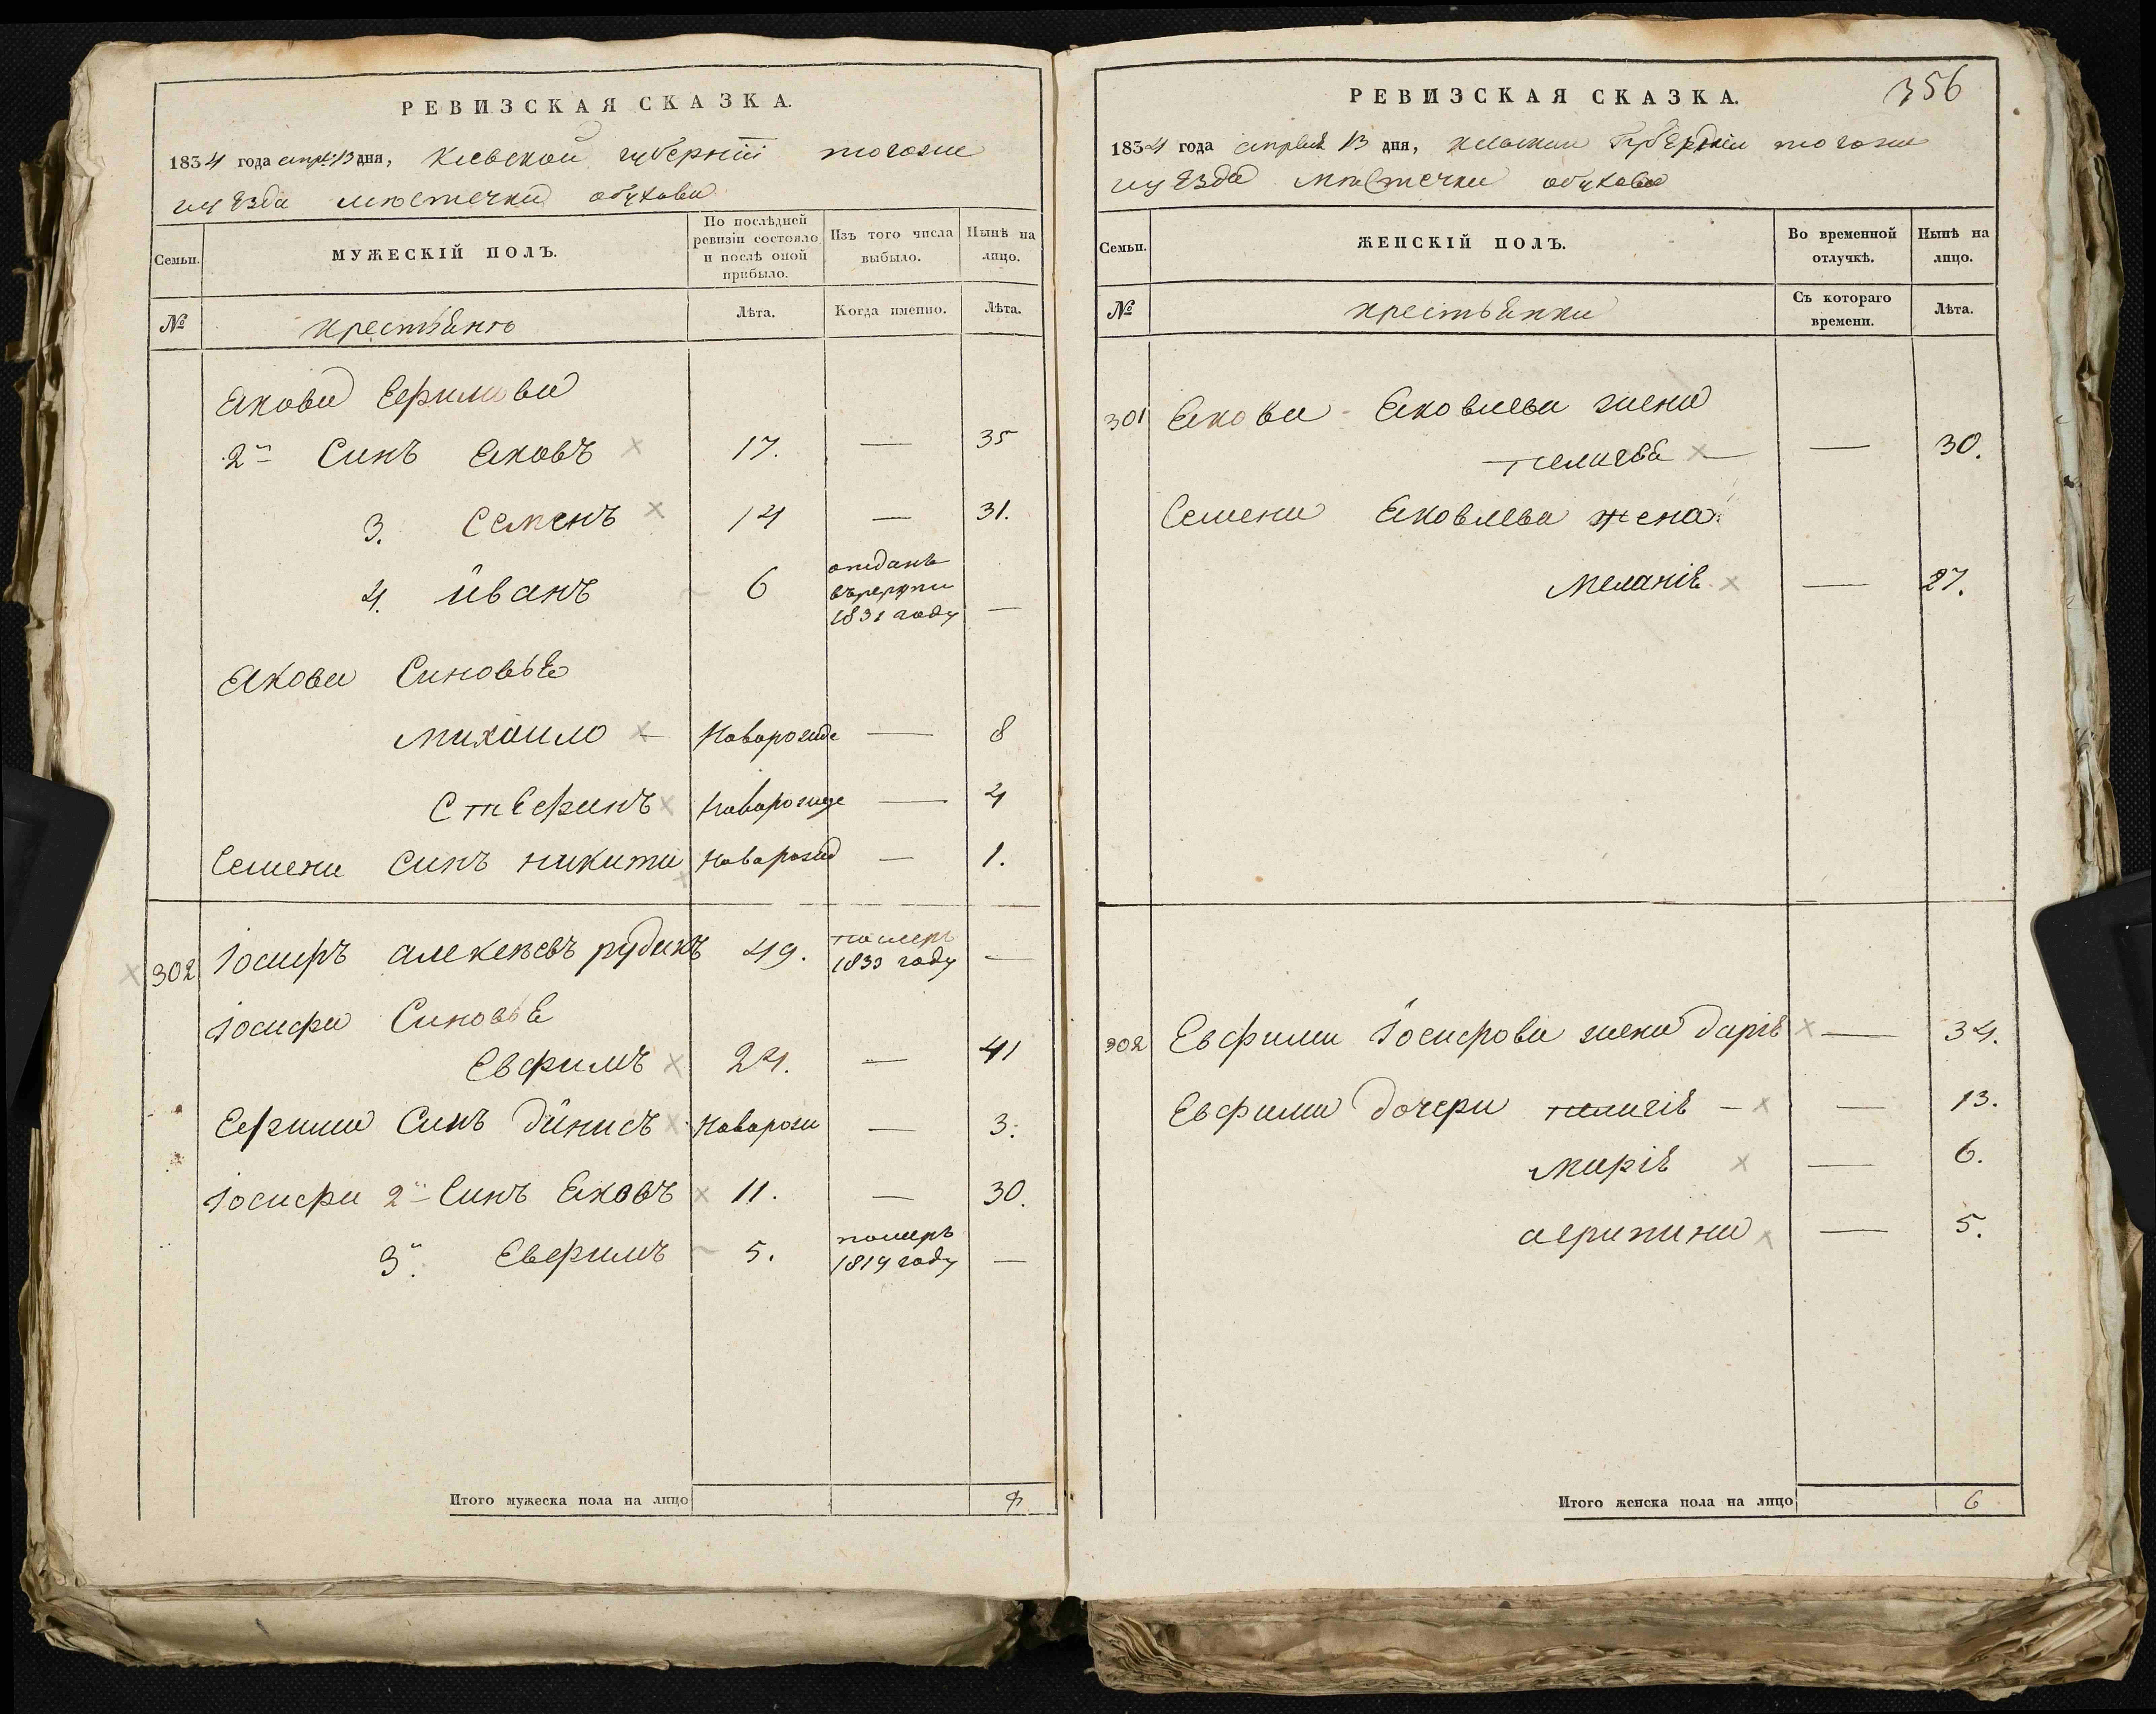 РЕВИЗСКАЯ СКАЗКА.
1834 года апрѣ: 13 дня, Киевской губернiи тогоже
уѣзда мѣстечка обухова
Семьи.
МУЖЕСКIЙ ПОЛЪ.
По послѣдней ревизiи состояло и послѣ оной прибыло.
Изъ того числа выбыло.
Нынѣ на лицо.
№
крестьянъ
Лѣта.
Когда именно.
Лѣта.
Якова Ефимова
2й Синъ Яковъ × 17. — 35
3. Семенъ × 14 — 31.
4. иванъ 6 отданъ
въ рекрти
1831 году —
Якова Синовья
михаило × Новорожде — 8
Стефанъ × Новорожде — 4
Семена Синъ никита × Новорожд — 1.
× 302 Iосифъ алексѣевъ рудикъ 49. померъ
1830 году —
Iосифа Синовья
Евфимъ × 24. — 41
Ефима Синъ динисъ × Новорож — 3.
Iосифа 2й Синъ Яковъ × 11. — 30.
3й Евфимъ 5. померъ
1819 году —
Итого мужеска пола на лицо 9
РЕВИЗСКАЯ СКАЗКА.
356
1834 года апрѣля 13 дня, киевскои Губернiи тогоже
уѣзда мѣстечка обухова
Семьи.
ЖЕНСКIЙ ПОЛЪ.
Во временной отлучкѣ.
Нынѣ на лицо.
№
крестьянки
Съ котораго времени.
Лѣта.
301 Якова Яковлева жена
пелагея × — 30.
Семена Яковлева жена
меланiя × — 27.
302 Евфима Iосифова жена дарiя × — 34.
Евфима дочери пелагiя × — 13.
марiя × — 6.
агрипина × — 5.
Итого женска пола на лицо 6